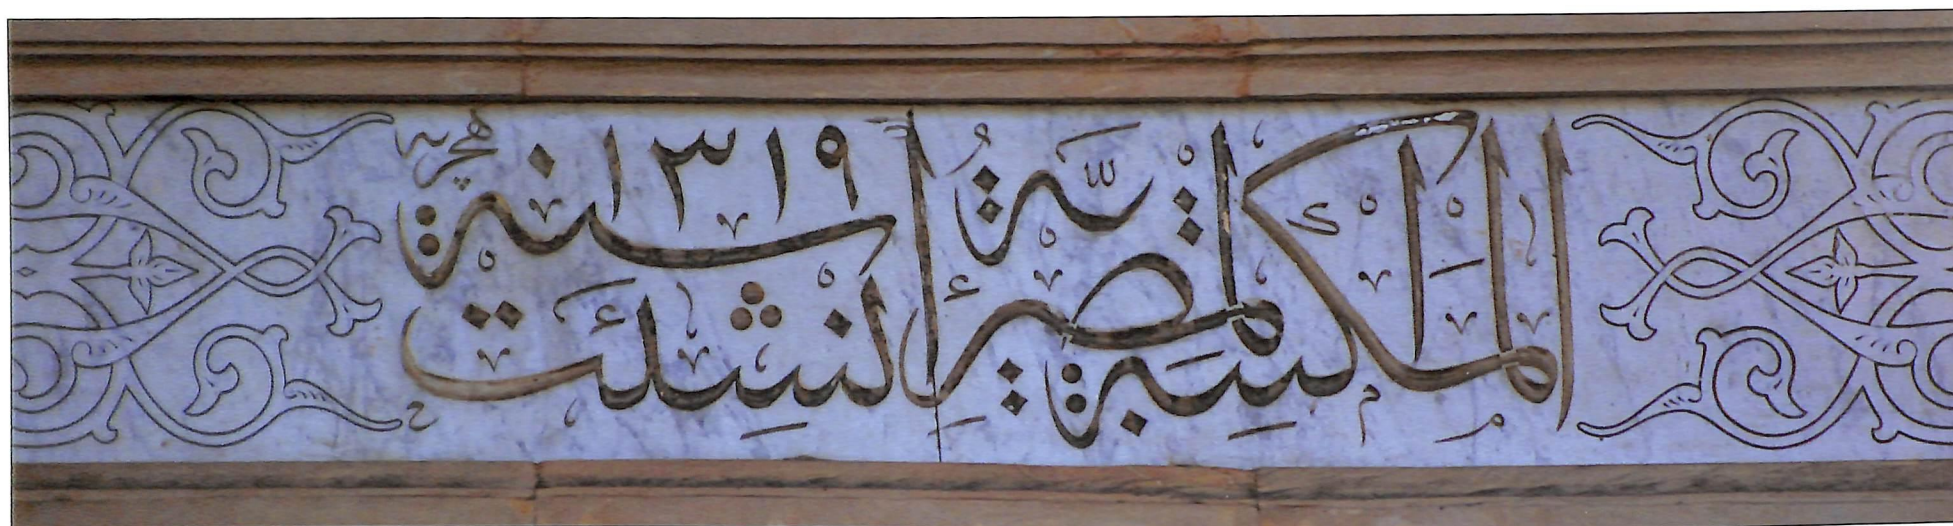 المكتبة المصرية أنشئت سنة ١٣١٩ هجرية